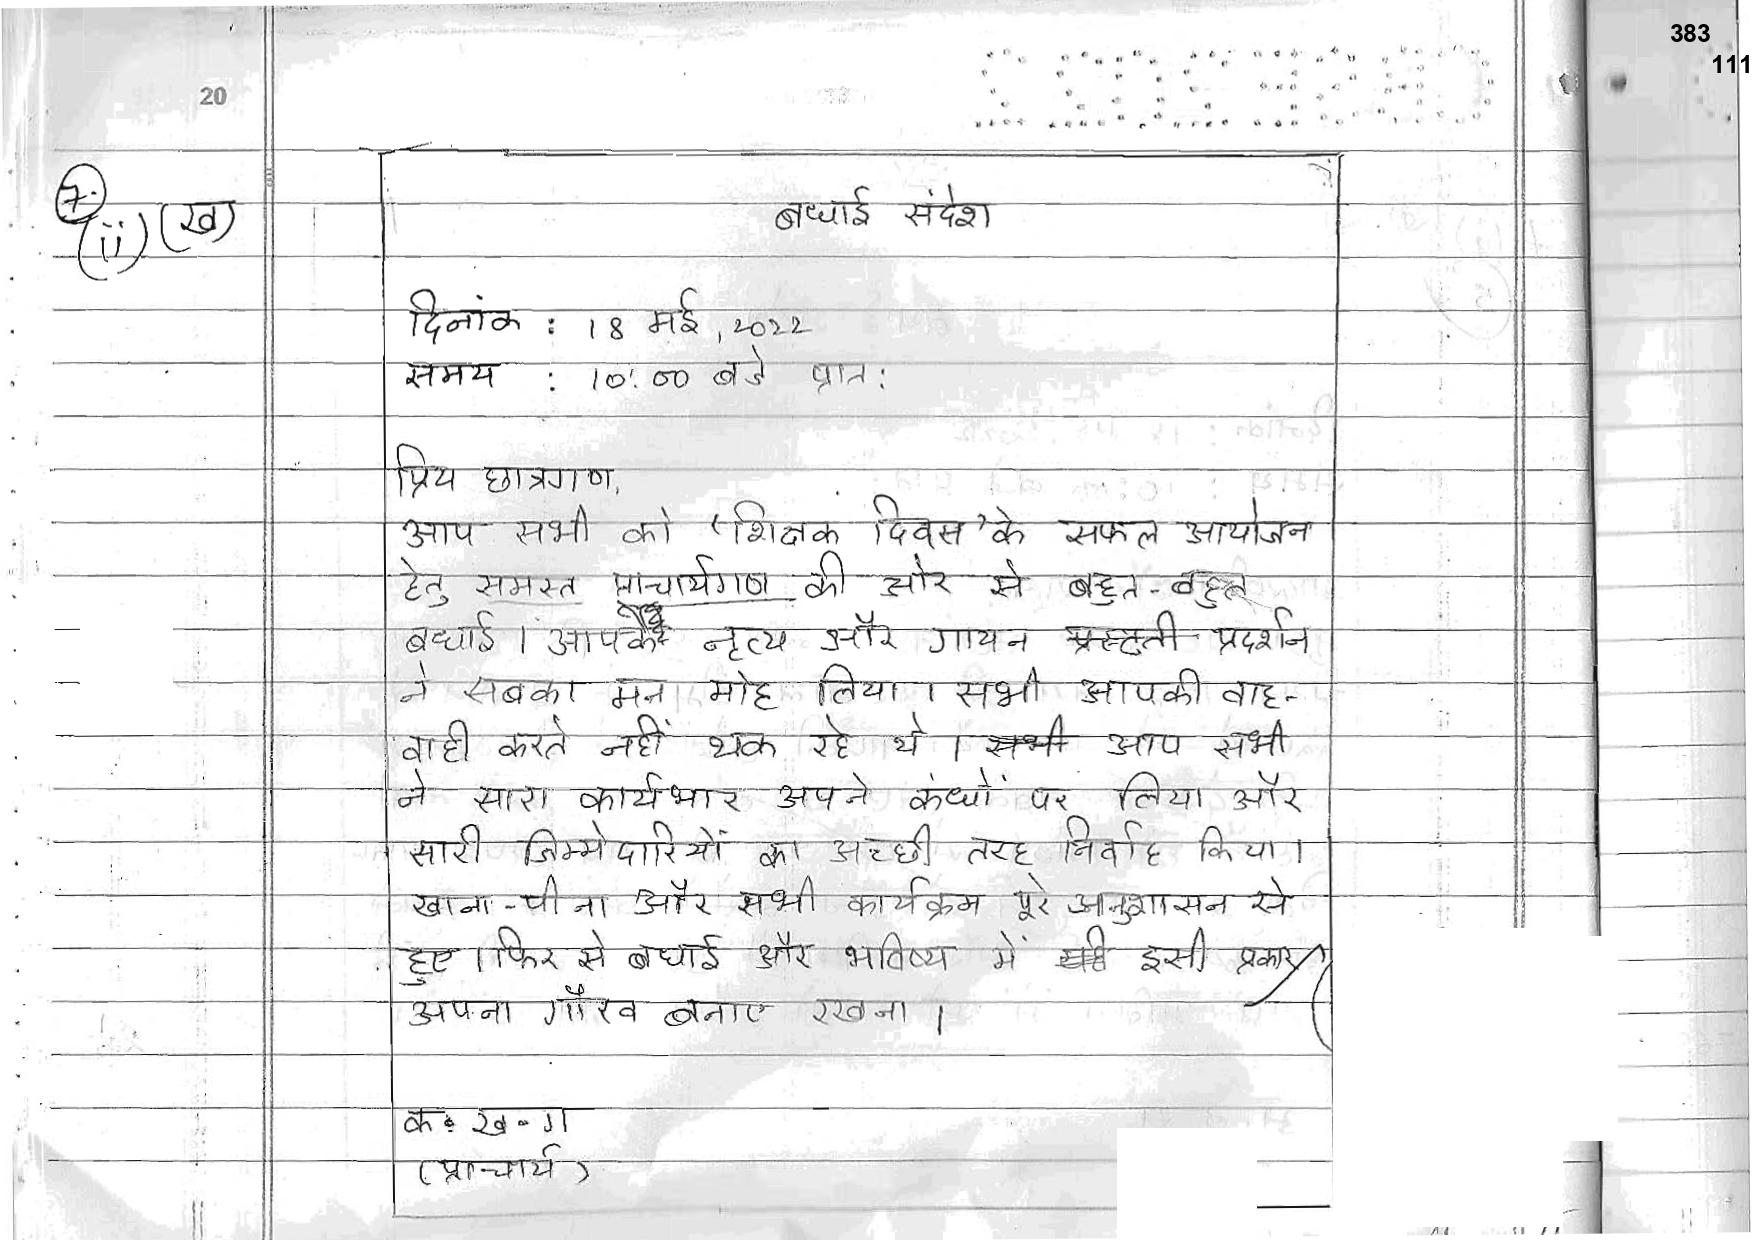 383
111
20
7.
(ii) (ख)
बधाई संदेश
दिनांक : 18 मई, 2022
समय : 10:00 बजे प्रात:
प्रिय छात्रगण,
आप सभी को 'शिक्षक दिवस' के सफल आयोजन
हेतु समस्त प्राचार्यगण की ओर से बहुत-बहुत
बधाई। आपके नृत्य और गायन प्रस्तुती प्रदर्शन
ने सबका मन मोह लिया। सभी आपकी वाह-
वाही करते नहीं थक रहे थे। सभी आप सभी
ने सारा कार्यभार अपने कंधों पर लिया और
सारी जिम्मेदारियों का अच्छी तरह निर्वाह किया।
खाना-पीना और सभी कार्यक्रम पूरे अनुशासन से
हुए। फिर से बधाई और भविष्य में इसी प्रकार
अपना गौरव बनाए रखना।
क॰ ख॰ ग
(प्राचार्य)